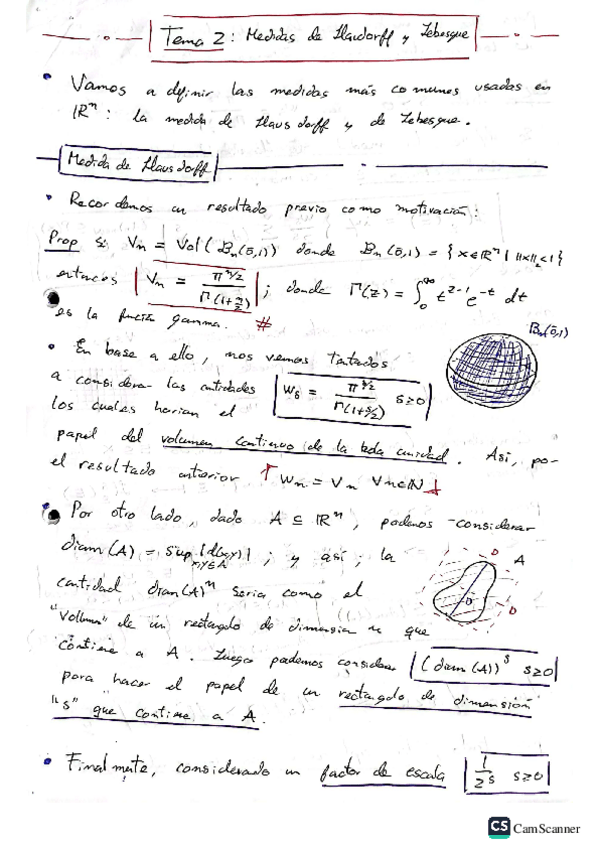 Tema 2: Medidas de Hausdorff y Lebesgue
• Vamos a definir las medidas más comunes usadas en
ℝⁿ: la medida de Hausdorff y de Lebesgue.
Medida de Hausdorff
• Recordamos un resultado previo como motivación:
Prop Si Vₙ = Vol(Bₙ(ō,1)) donde Bₙ(ō,1) = {x∈ℝⁿ | ||x||₂<1}
entonces Vₙ = π^(n/2) / Γ(1+n/2) ; donde Γ(z) = ∫₀^∞ t^(z-1) e^(-t) dt
es la función gamma. #
Bₙ(ō,1)
• En base a ello, nos vemos tentados
a considerar las cantidades W_s = π^(s/2) / Γ(1+s/2) s≥0
los cuales harían el
papel del volumen continuo de la bola unidad. Así, po-
el resultado anterior Wₙ = Vₙ ∀n∈ℕ
• Por otro lado, dado A ⊆ ℝⁿ, podemos considerar
diam(A) = sup_{x,y∈A} {d(x,y)} ; y así, la
A
D
D
D
cantidad diam(A)ⁿ sería como el
"volumen" de un rectangulo de dimension n que
contiene a A. Luego podemos considerar (diam(A))^s s≥0
para hacer el papel de un rectangulo de dimensión
"s" que contiene a A.
• Finalmente, considerado un factor de escala 1/2^s s≥0
CS CamScanner